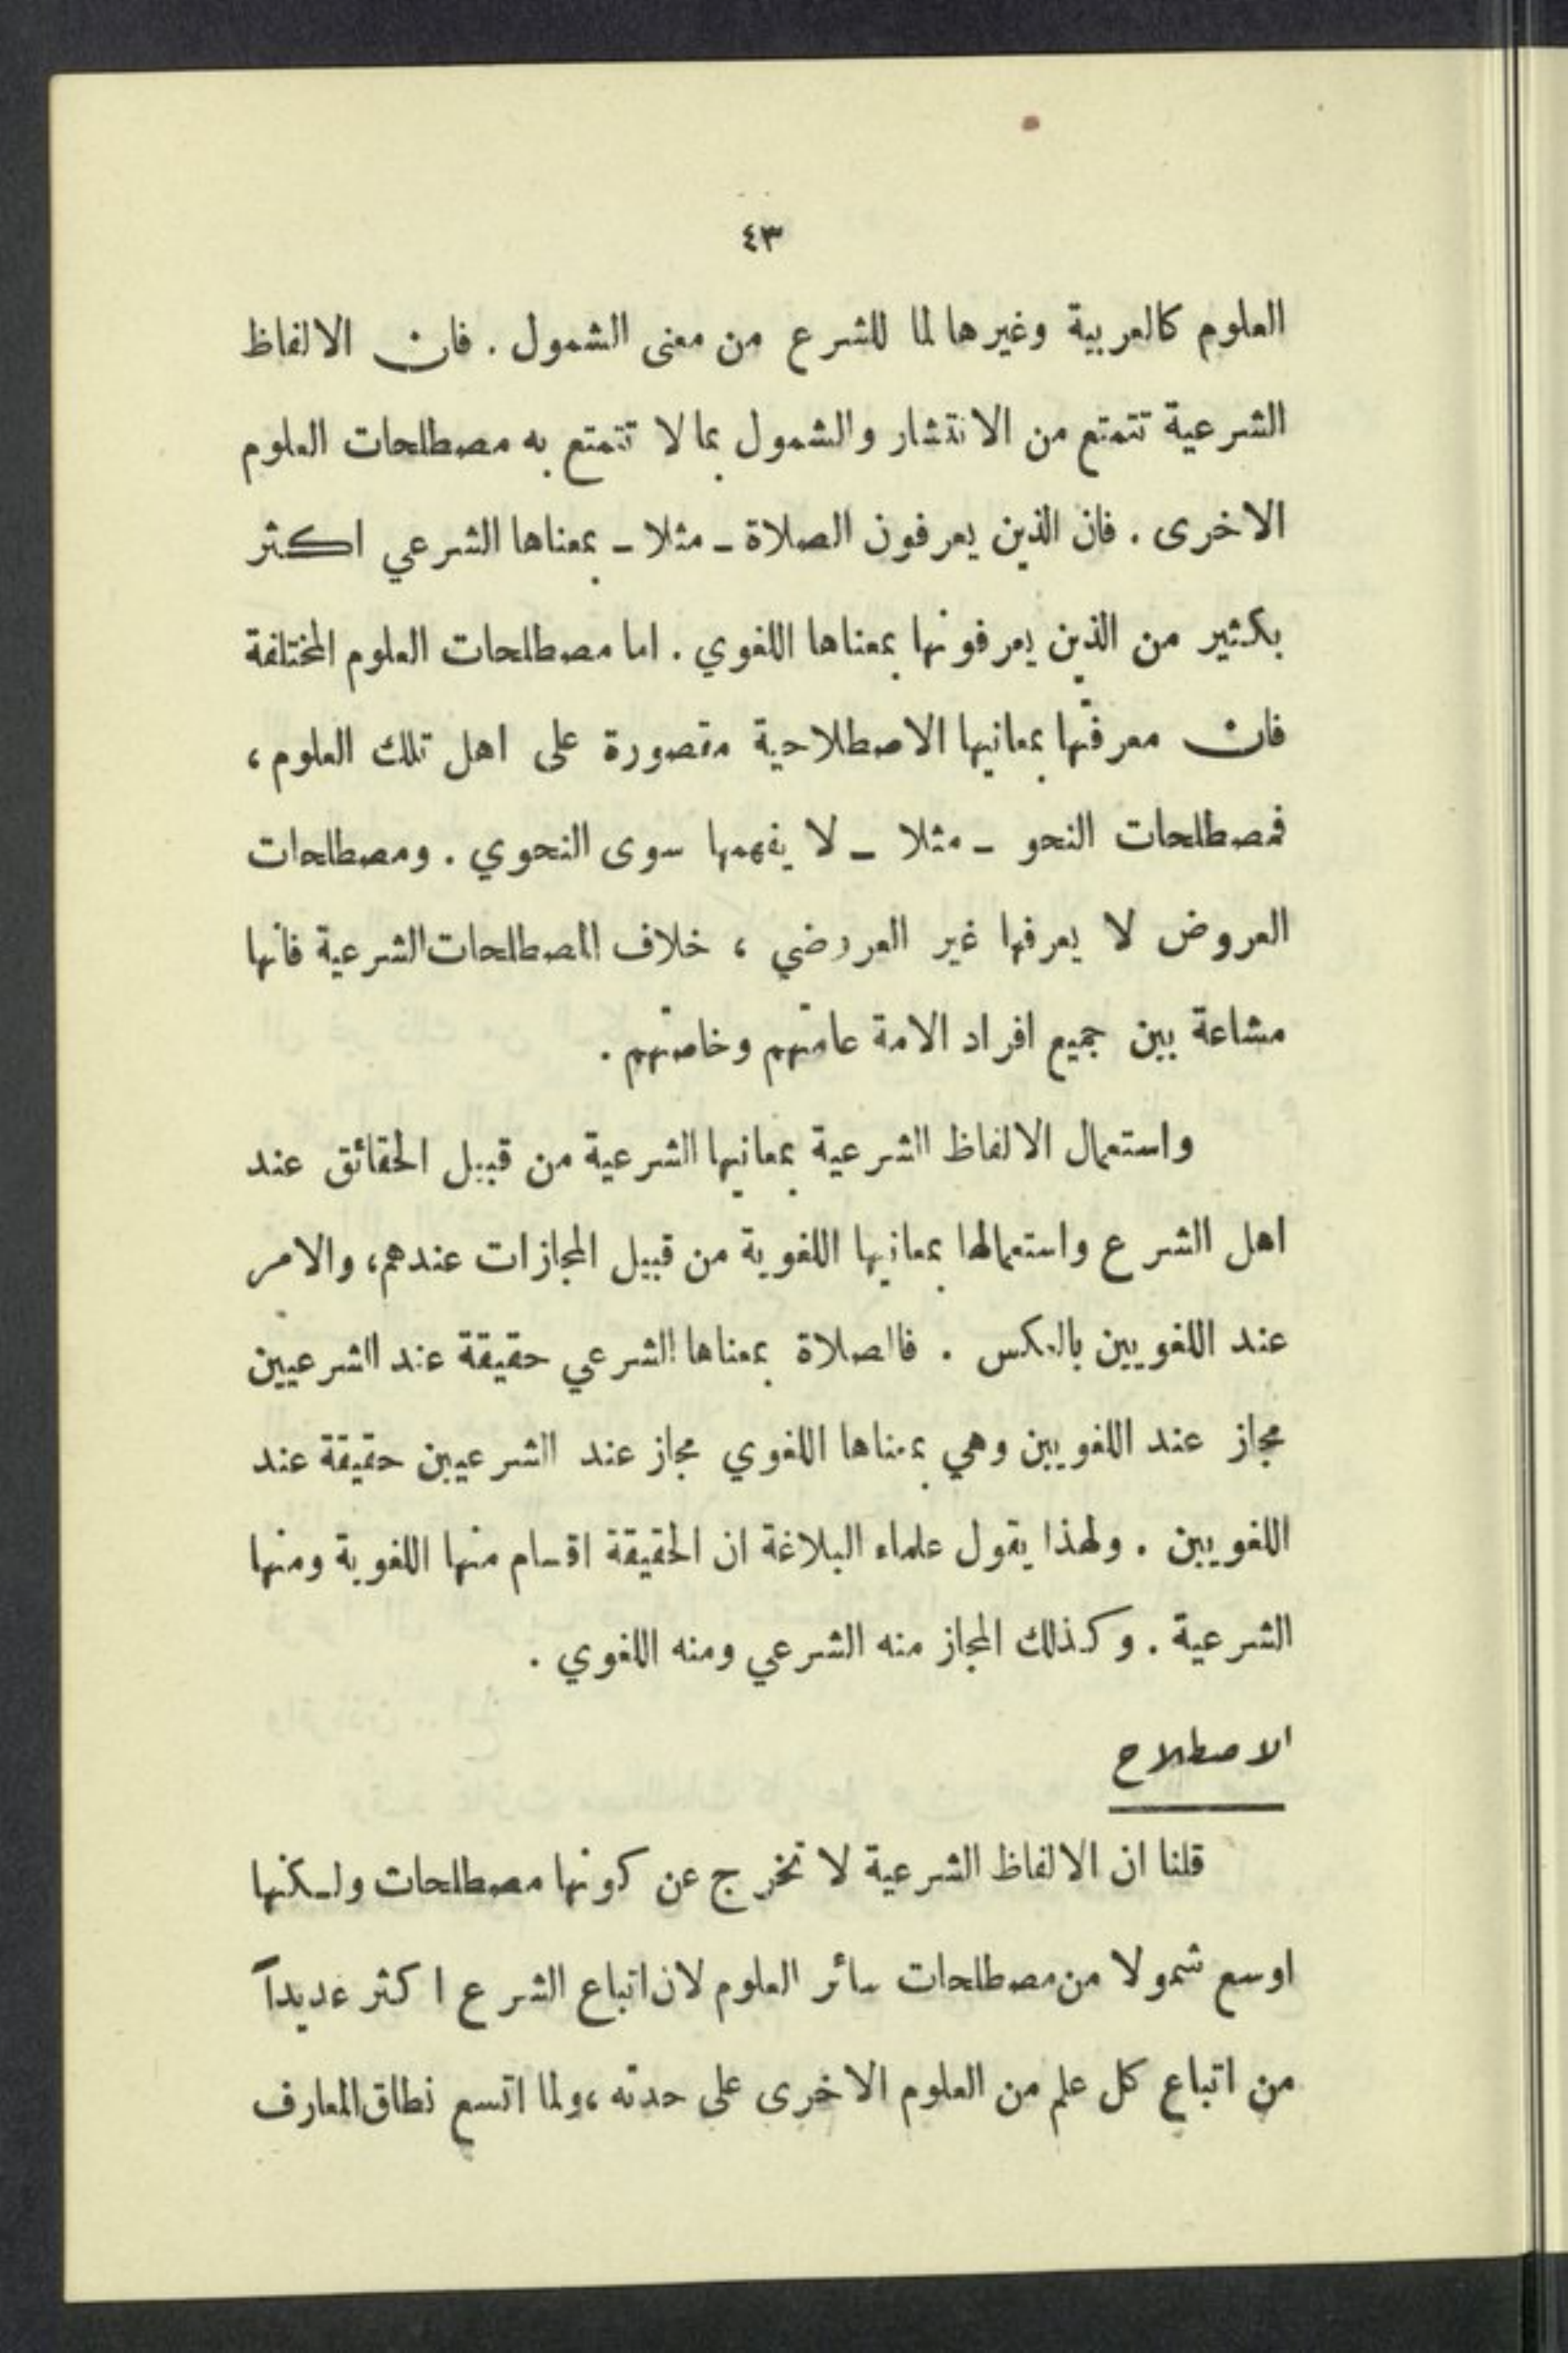 ٤٣
العلوم كالعربية وغيرها لما للشرع من معنى الشمول . فان الالفاظ
الشرعية تتمتع من الانتشار والشمول بما لا تتمتع به مصطلحات العلوم
الاخرى . فان الذين يعرفون الصلاة ـ مثلا ـ بمعناها الشرعي اكثر
بكثير من الذين يعرفونها بمعناها اللغوي . اما مصطلحات العلوم المختلفة
فان معرفتها بمعانيها الاصطلاحية مقصورة على اهل تلك العلوم ،
فمصطلحات النحو ـ مثلا ـ لا يفهمها سوى النحوي . ومصطلحات
العروض لا يعرفها غير العروضي ، خلاف المصطلحات الشرعية فانها
مشاعة بين جميع افراد الامة عامتهم وخاصتهم .
واستعمال الالفاظ الشرعية بمعانيها الشرعية من قبيل الحقائق عند
اهل الشرع واستعمالها بمعانيها اللغوية من قبيل المجازات عندهم، والامر
عند اللغويين بالعكس . فالصلاة بمعناها الشرعي حقيقة عند الشرعيين
مجاز عند اللغويين وهي بمعناها اللغوي مجاز عند الشرعيين حقيقة عند
اللغويين . ولهذا يقول علماء البلاغة ان الحقيقة اقسام منها اللغوية ومنها
الشرعية . وكذلك المجاز منه الشرعي ومنه اللغوي .
الاصطلاح
قلنا ان الالفاظ الشرعية لا تخرج عن كونها مصطلحات ولكنها
اوسع شمولا من مصطلحات سائر العلوم لان اتباع الشرع اكثر عديداً
من اتباع كل علم من العلوم الاخرى على حدته ،ولما اتسع نطاق المعارف